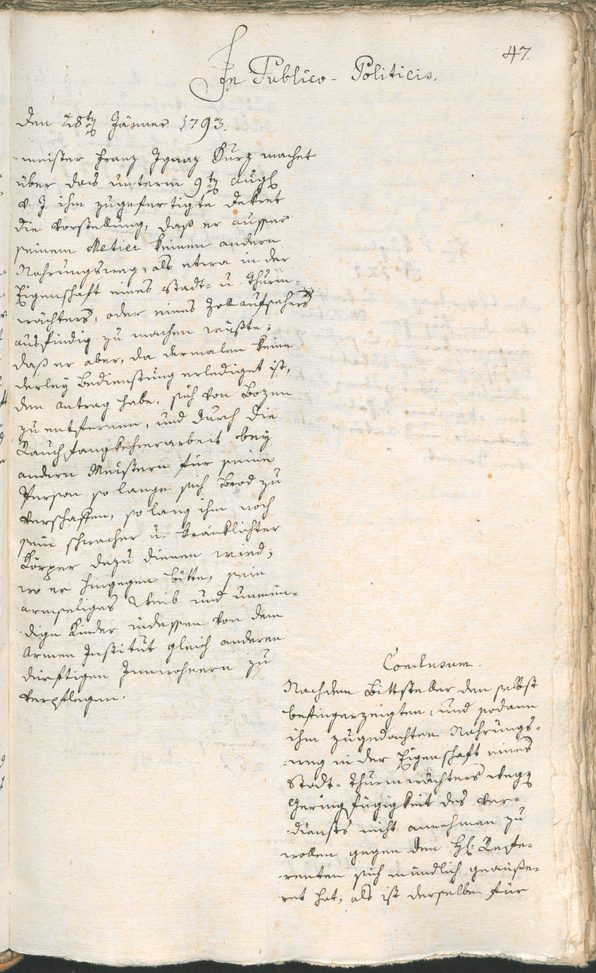 47.
In Publico-Politicis.
den 28ten Jänner 1793.
meister Franz Ignaz Kurz machet
über das unterm 9ten Augs
v. J. ihm zugefertigte Dekret
die Vorstellung, daß er ausser
seinem Metier keinen andern
Nahrungsweg, als etwa in der
Eigenschaft eines Stadt- u. Thurm-
wächters, oder eines Zolaufsehers
ausfindig zu machen wüßte;
daß er aber, da dermalen keine
derley Bedienstung erlediget ist,
den Antrag habe, sich von Bozen
zu entfernen, und durch die
Rauchfangkehrerarbeit bey
andern Meistern für seine
Person so lange sich Brod zu
verschaffen, so lang ihm noch
sein schwacher u. kränklichter
Körper dazu dienen wird;
wo er hingegen bitte, sein
armseliges Weib und unmün-
dige Kinder indessen von dem
Armen Institut gleich anderen
dürftigen Innwohnern zu
verpflegen.
Conclusum.
Nachdem Bittsteller den selbst
befingerzeigten, und sodann
ihm zugedachten Nahrungs-
weg in der Eigenschaft eines
Stadt-Thurmwächters wegen
Geringfügigkeit des Ver-
diensts nicht annehmen zu
wollen gegen den H: Refe-
renten sich mündlich geäuße-
ret hat, als ist derselbe für